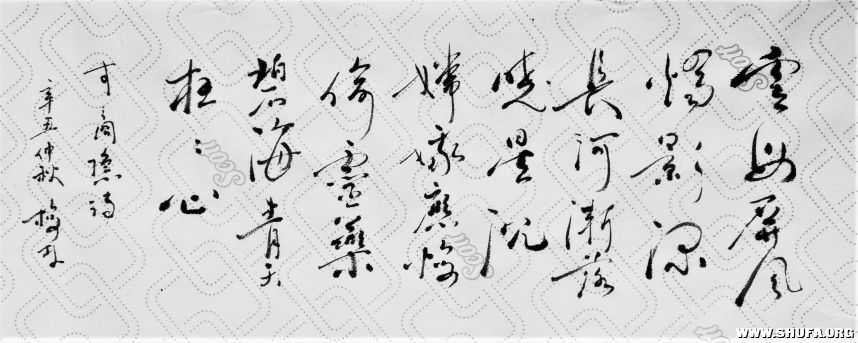 雲母屏風
燭影深
長河漸落
曉星沉
嫦娥應悔
偷靈藥
碧海青天
夜々心
李商隱詩
辛丑仲秋
WWW.SHUFA.ORG